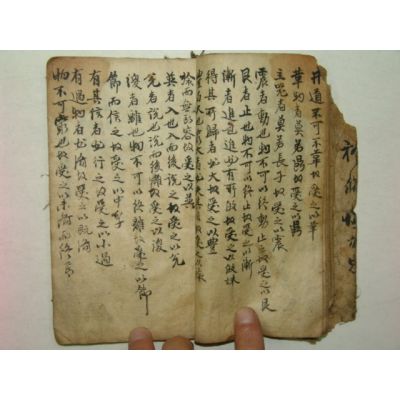 井道不可不革故受之以革
革物者莫若鼎故受之以鼎
主器者莫若長子故受之以震
震者動也物不可以終動止之故受之以艮
艮者止也物不可以終止故受之以漸
漸者進也進必有所歸故受之以歸妹
得其所歸者必大故受之以豐
大也窮大者必失其居故受之以旅
旅而無所容故受之以巽
巽者入也入而後說之故受之以兌
兌者說也說而後散之故受之以渙
渙者離也物不可以終離故受之以節
節而信之故受之以中孚
有其信者必行之故受之以小過
有過物者必濟故受之以既濟
物不可窮也故受之以未濟而終焉